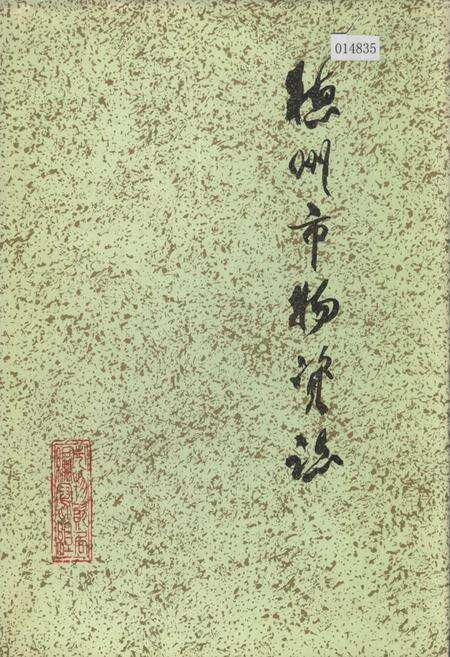 014835
德州市物资志